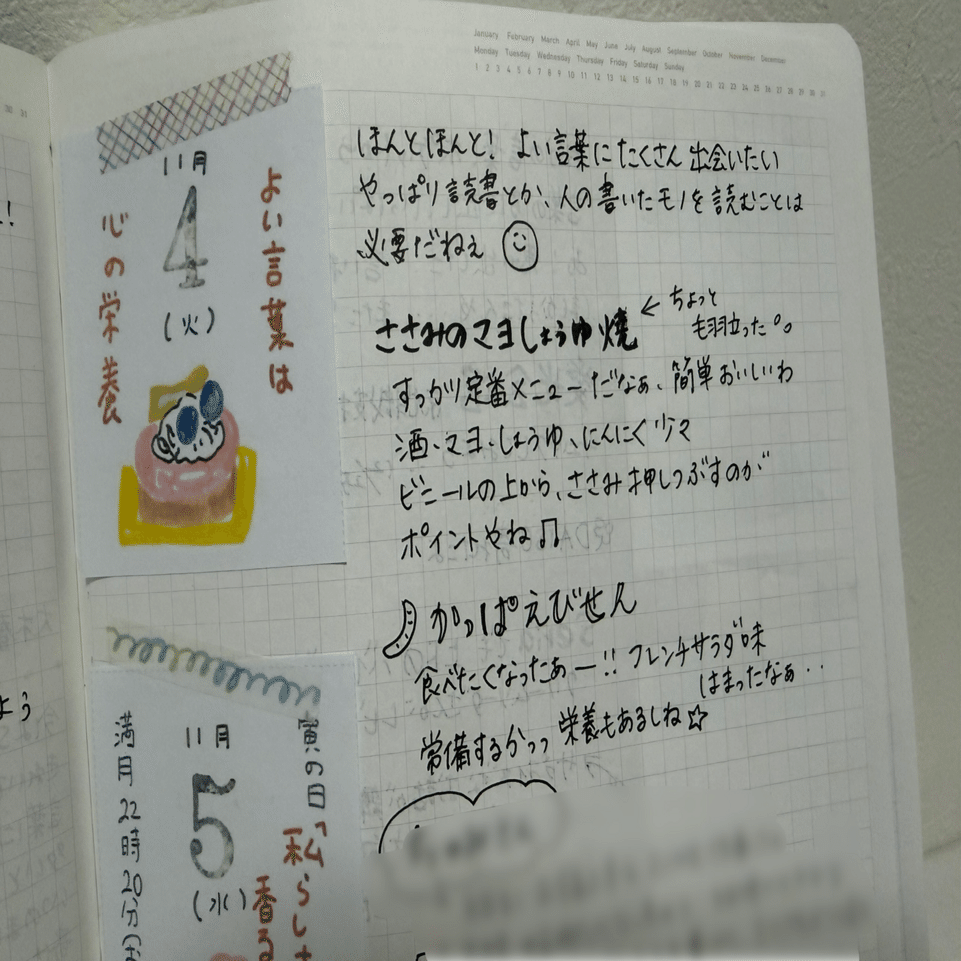 January February March April May June July August September October November December
Monday Tuesday Wednesday Thursday Friday Saturday Sunday
1 2 3 4 5 6 7 8 9 10 11 12 13 14 15 16 17 18 19 20 21 22 23 24 25 26 27 28 29 30 31
30 31
11月
4
(火)
よい言葉は
心の栄養
ほんとほんと! よい言葉にたくさん出会いたい
やっぱり読書とか、人の書いたモノを読むことは
必要だねぇ
ささみのマヨしょうゆ焼
← ちょっと
毛羽立った
すっかり定番メニューだなぁ、簡単おいしいわ
酒、マヨ、しょうゆ、にんにく少々
ビニールの上から、ささみ押しつぶすのが
ポイントやね♫
かっぱえびせん
食べたくなったぁー!! フレンチサラダ味
はまったなぁ‥
常備するかっっ 栄養もあるしね☆
11月
5
(水)
寅の日
「私らしさ
香る
満月22時20分
よう